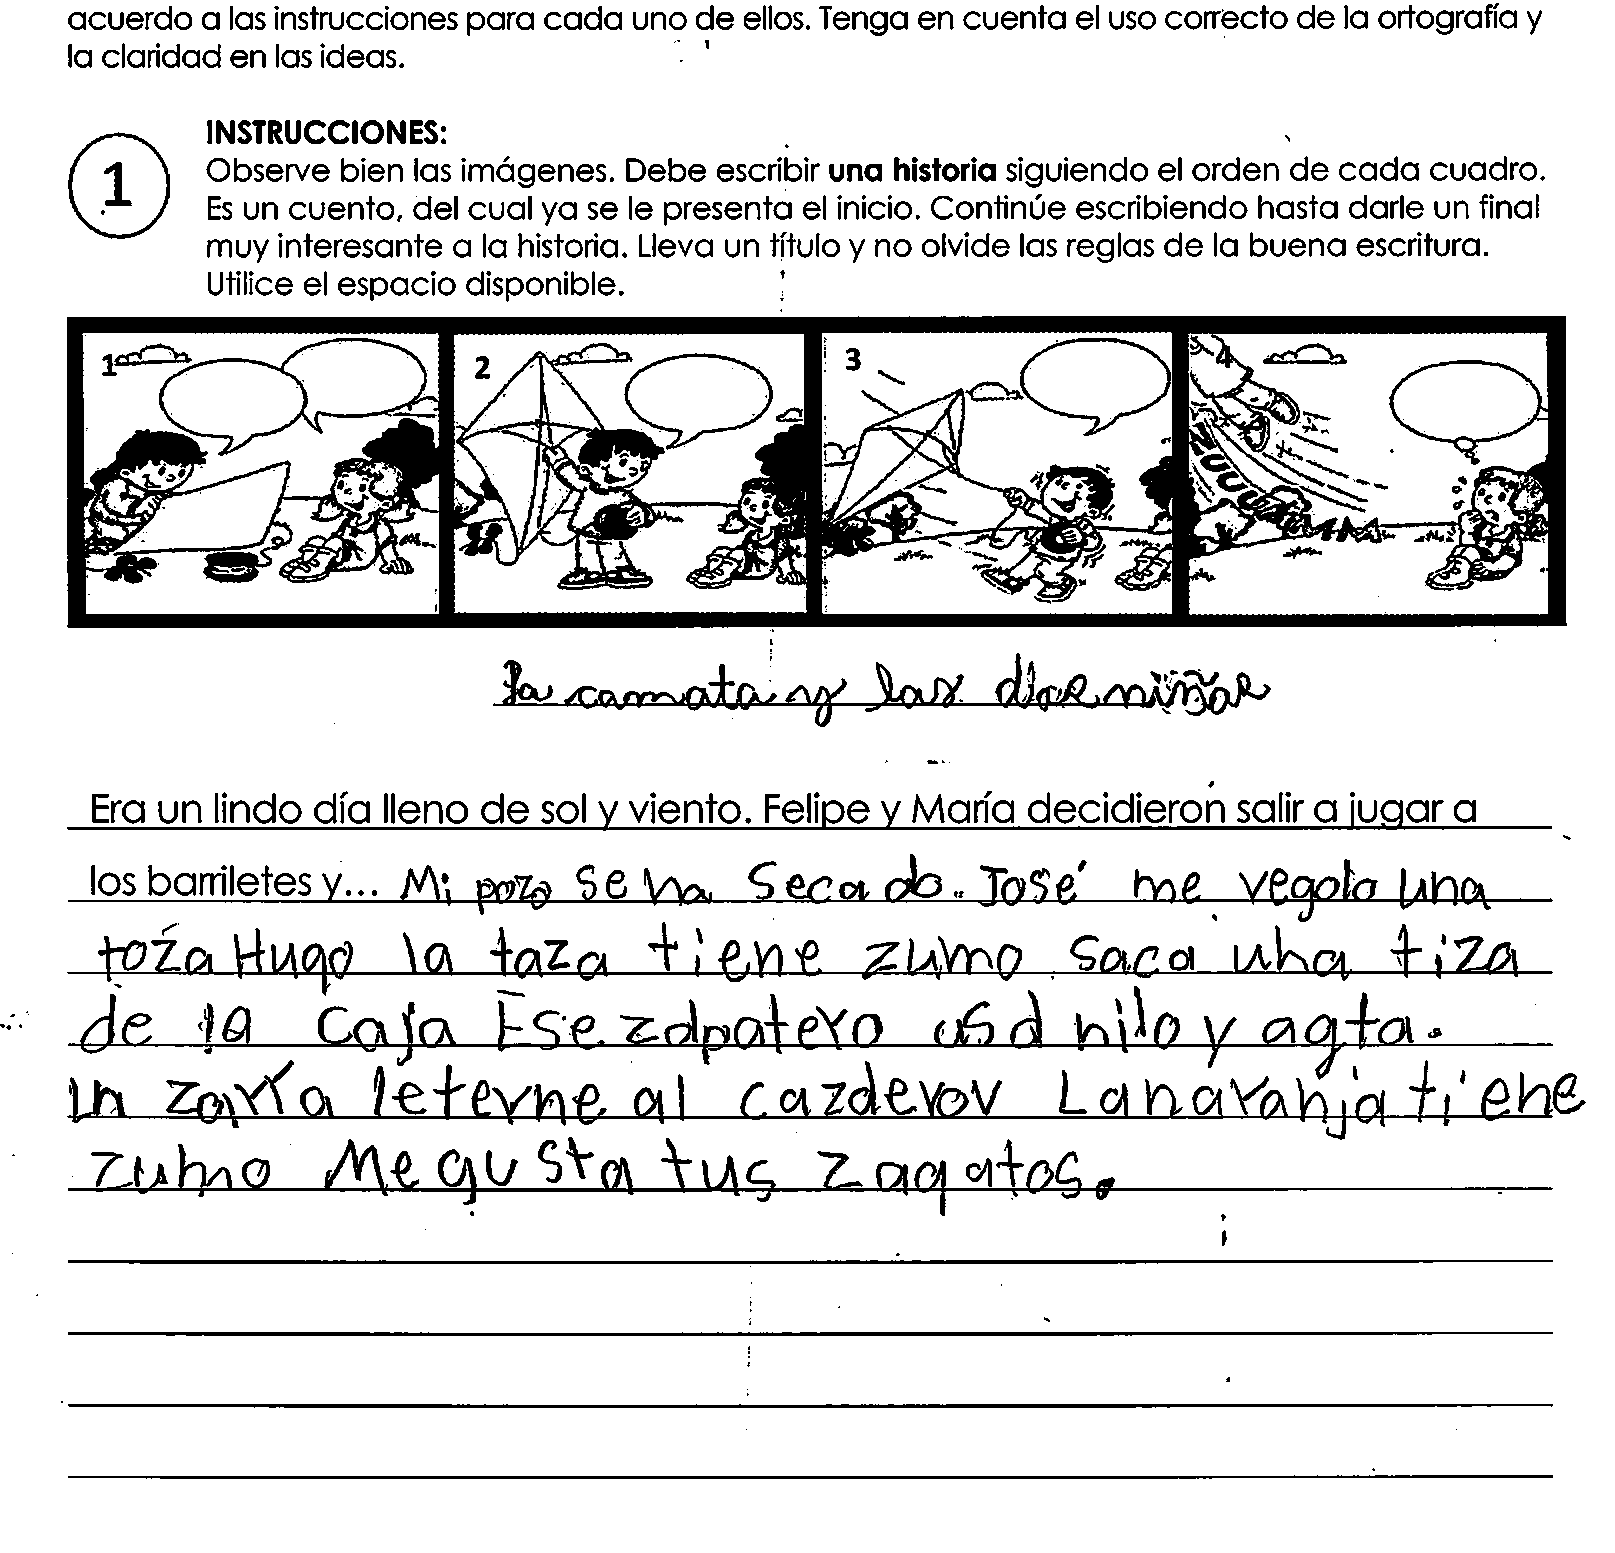 acuerdo a las instrucciones para cada uno de ellos. Tenga en cuenta el uso correcto de la ortografía y
la claridad en las ideas.
1
INSTRUCCIONES:
Observe bien las imágenes. Debe escribir una historia siguiendo el orden de cada cuadro.
Es un cuento, del cual ya se le presenta el inicio. Continúe escribiendo hasta darle un final
muy interesante a la historia. Lleva un título y no olvide las reglas de la buena escritura.
Utilice el espacio disponible.
1 2 3 4
ZUUUUMMM
La camata y las dos niñas
Era un lindo día lleno de sol y viento. Felipe y María decidieron salir a jugar a
los barriletes y... Mi pozo se ha secado. José me vegolo una
toza Hugo la taza tiene zumo saca una tiza
de la caja Ese zapatero usa hilo y agta.
un zorra leterne al cazderov La naranja tiene
zumo Me gusta tus zaqatos.